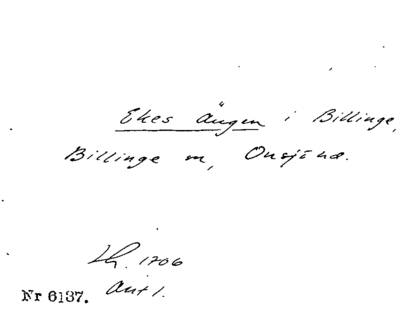 Ekes Ängen i Billinge,
Billinge sn, Onsjö hd.
Lh. 1706
Ant 1.
Nr 6137.